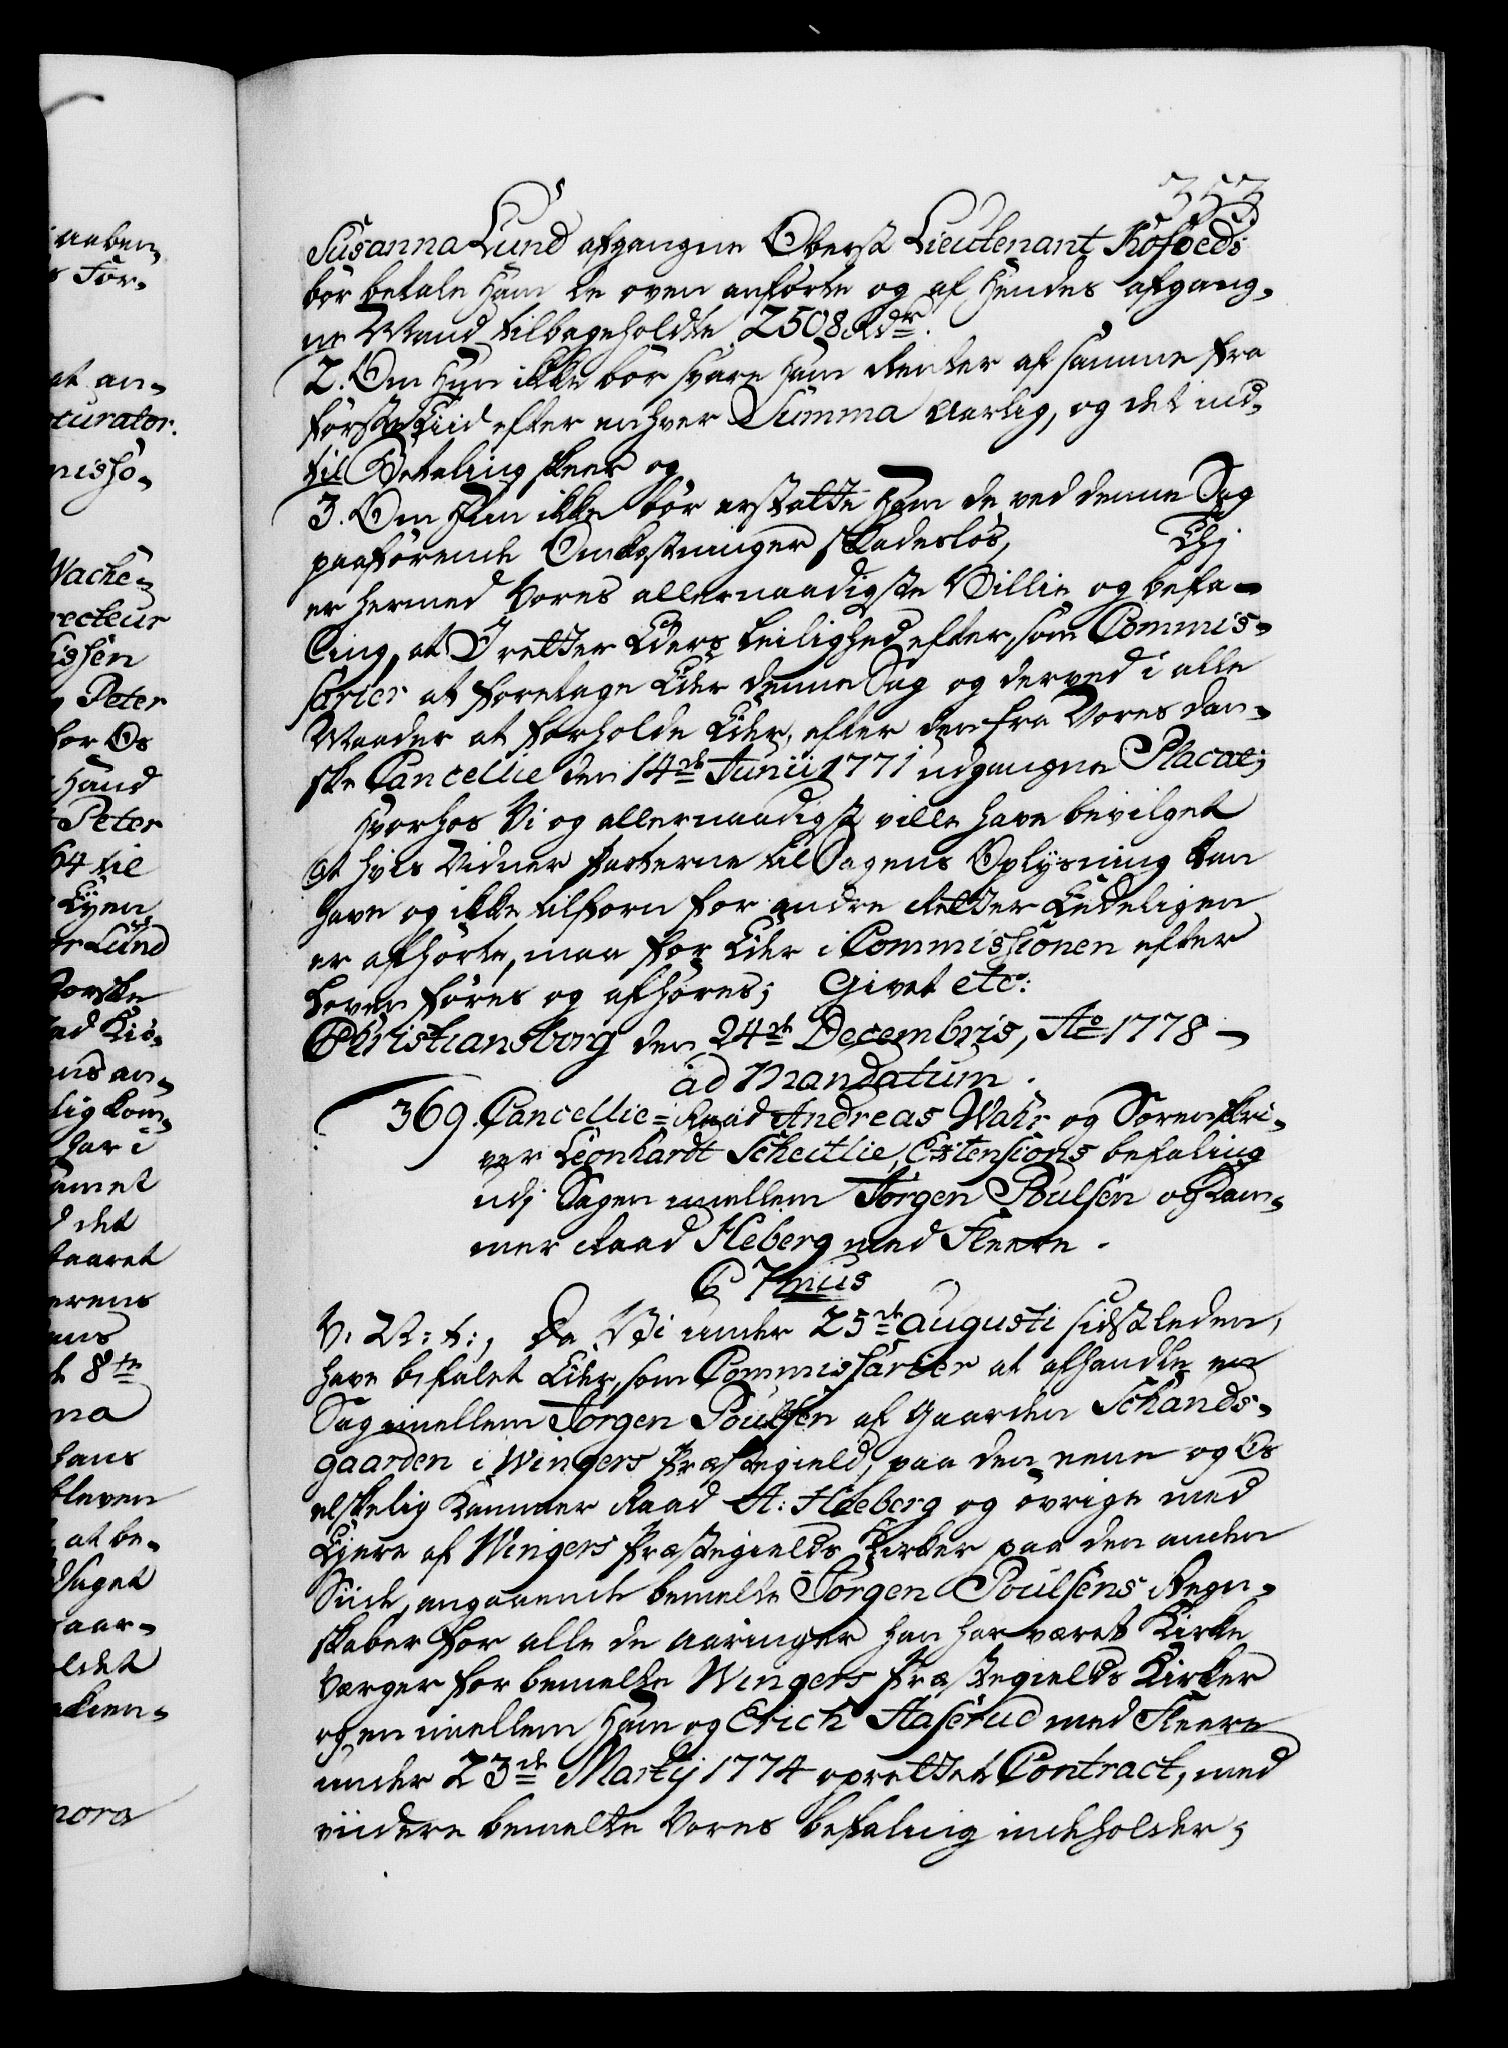 353
Susanna Lund afgangne Oberst Lieutenant Kofoeds
bør betale Ham de oven anførte og af Hendes afgang-
ne Mand tilbageholdte 2508 Rdr.
2. Om Hun ikke bør svare Ham Renter af samme fra
første Tiid efter enhver Summa aarlig, og det ind-
til Betaling skeer og
3. Om Hun ikke bør erstatte Ham de ved denne Sag
paaførende Omkostninger skadesløs, Thi
er hermed Vores allernaadigste Villie og befa-
ling, at I retter Eders Leilighed efter, som Commis-
sarier at foretage Eder denne Sag og derved i alle
Maader at forholde Eder, efter den fra Vores dan-
ske Cancellie den 14de Junii 1771 udgangne Placat;
Hvorhos Vi og allernaadigst ville have bevilget
at hvis Vidner Parterne til Sagens Oplysning kan
have og ikke tilforn for andre Retter Eedeligen
er afhørte, maa for Eder i Commissionen efter
Loven føres og afhøres; Givet etc:
Christiansborg den 24de Decembris, Ao 1778 -
ad Mandatum.
369. Cancellie-Raad Andreas Wahr og Sorenskri-
ver Leonhardt Scheitlie, Extensions befaling
udj Sagen imellem Jørgen Poulsen og Kam-
mer Raad Heberg med Fleere.
C 7mus
V: V: t:, Da Vi under 25de Augusti sidstleden,
have befalet Eder, som Commissarier at afhandle en
Sag imellem Jørgen Poulsen af Gaarden Schands-
gaarden i Wingers Præstegield, paa den eene og Os
elskelig Kammer Raad A: Heeberg og øvrige med
Ejere af Wingers Præstegields Kirker paa den anden
Siide, angaaende bemelte Jørgen Poulsens Regn-
skaber for alle de Aaringer han har været Kirke
Værger for bemelte Wingers Præstegields Kirker
og en imellem Ham og Erich Aaserud med Fleere
under 23de Martij 1774 oprettet Contract, med
viidere bemelte Vores befaling indeholder;